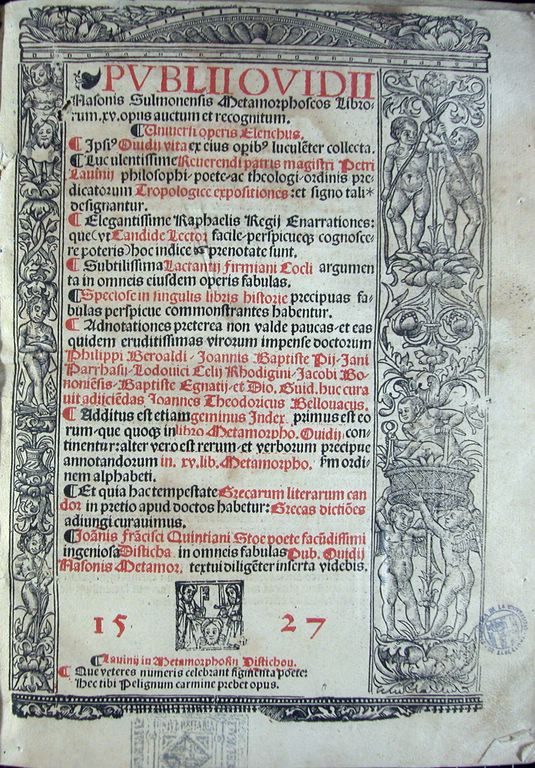 PVBLII OVIDII
Nasonis Sulmonensis Metamorphoseos Libro-
rum. xv. opus auctum et recognitum.
¶ Vniuersi operis Elenchus.
¶ Ipsiꝰ Ouidij vita ex eius opibꝰ luculēter collecta.
¶ Luculentissime Reuerendi patris magistri Petri
Lauinij philosophi-poete-ac theologi-ordinis pre
dicatorum Tropologice expositiones: et signo tali*
designantur.
¶ Elegantissime Raphaelis Regij Enarrationes:
que (vt Candide Lector facile-perspicueqȝ cognosce-
re poteris) hoc indice ☞ prenotate sunt.
¶ Subtilissima Lactantij Firmiani Coeli argumen
ta in omneis eiusdem operis fabulas.
¶ Speciose in singulis libris historie precipuas fa-
bulas perspicue commonstrantes habentur.
¶ Adnotationes preterea non valde paucas-et eas
quidem eruditissimas virorum impense doctorum
Philippi Beroaldi-Joannis Baptiste Pij-Jani
Parrhasij-Lodouici Celij Rhodigini-Jacobi Bo-
noniēsis-Baptiste Egnatij-et Dio. Guid. huc cura
uit adijciēdas Joannes Theodoricus Bellouacus.
¶ Additus est etiam geminus Index primus est eo
rum-que quoqȝ in libro Metamorpho. Ouidij con
tinentur: alter vero est rerum-et verborum precipue
annotandorum in. xv. lib. Metamorpho. ẜm ordi
nem alphabeti.
¶ Et quia hac tempestate Grecarum literarum can
dor in pretio apud doctos habetur: Grecas dictiōes
adiungi curauimus.
¶ Joānis Frācisci Quintiani Stoe poete facūdissimi
ingeniosa Disticha in omneis fabulas Pub. Ouidij
Nasonis Metamor. textui diligēter inserta videbis.
15 27
¶ Lauinij in Metamorphosin Distichon.
¶ Que veteres numeris celebrant figmenta poete:
Hec tibi Pelignum carmine prebet opus.